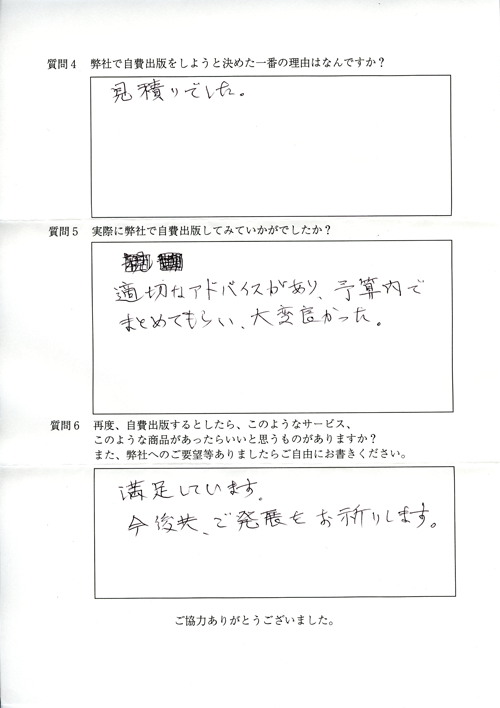 質問4　弊社で自費出版をしようと決めた一番の理由はなんですか？
見積りでした。
質問5　実際に弊社で自費出版してみていかがでしたか？
適切なアドバイスがあり、予算内で
まとめてもらい、大変良かった。
質問6　再度、自費出版するとしたら、このようなサービス、
このような商品があったらいいと思うものがありますか？
また、弊社へのご要望等ありましたらご自由にお書きください。
満足しています。
今後共、ご発展をお祈りします。
ご協力ありがとうございました。